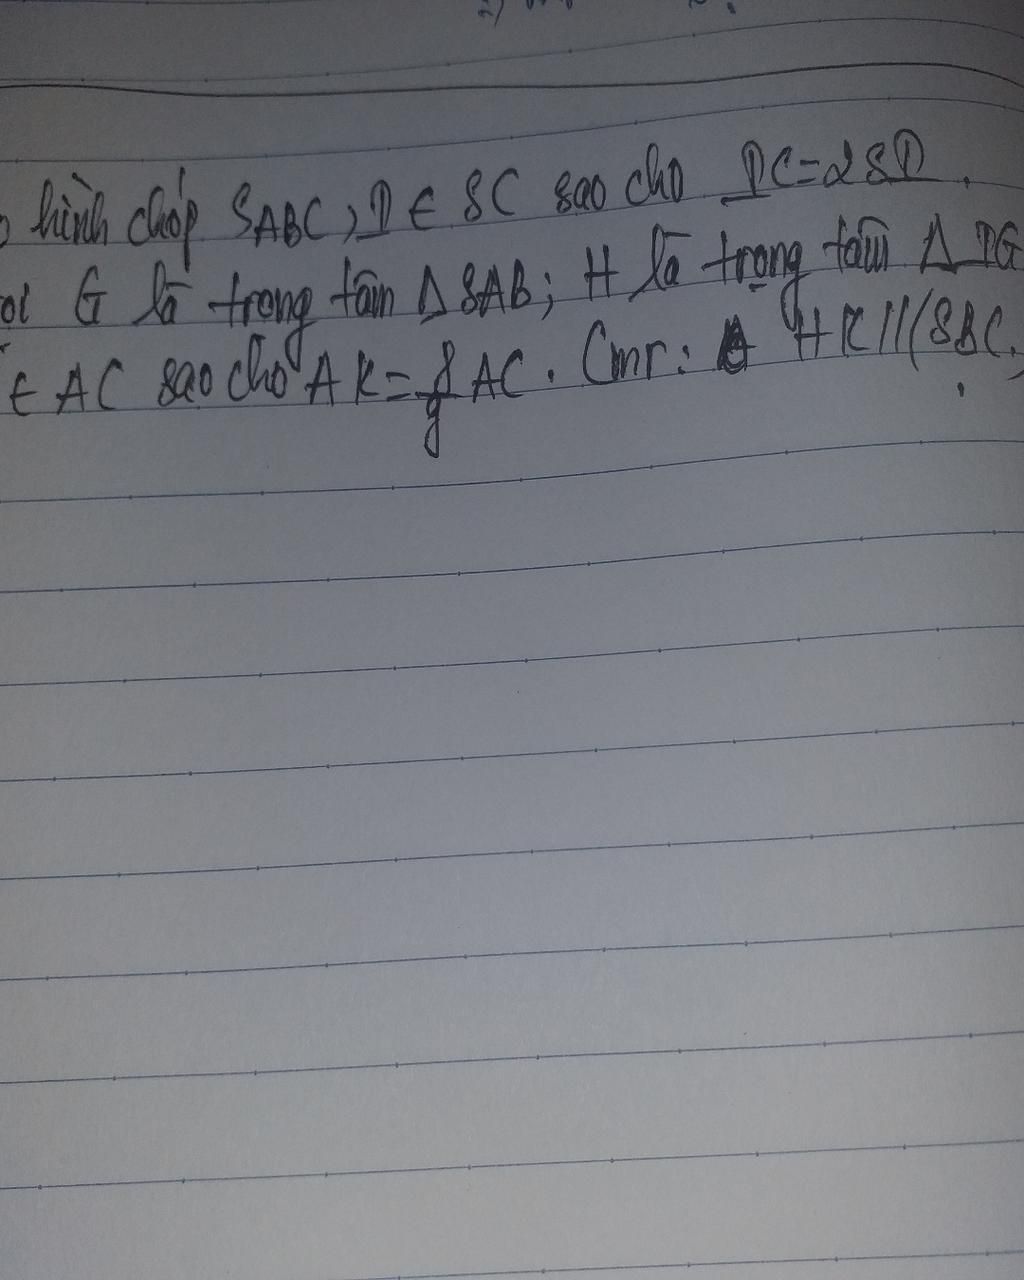 hình chóp SABC, I ∈ SC sao cho IC=2SI.
G là trọng tâm Δ SAB; H là trọng tâm Δ IG
∈ AC sao cho AK = 8/9 AC. Cmr: HK//(SBC)